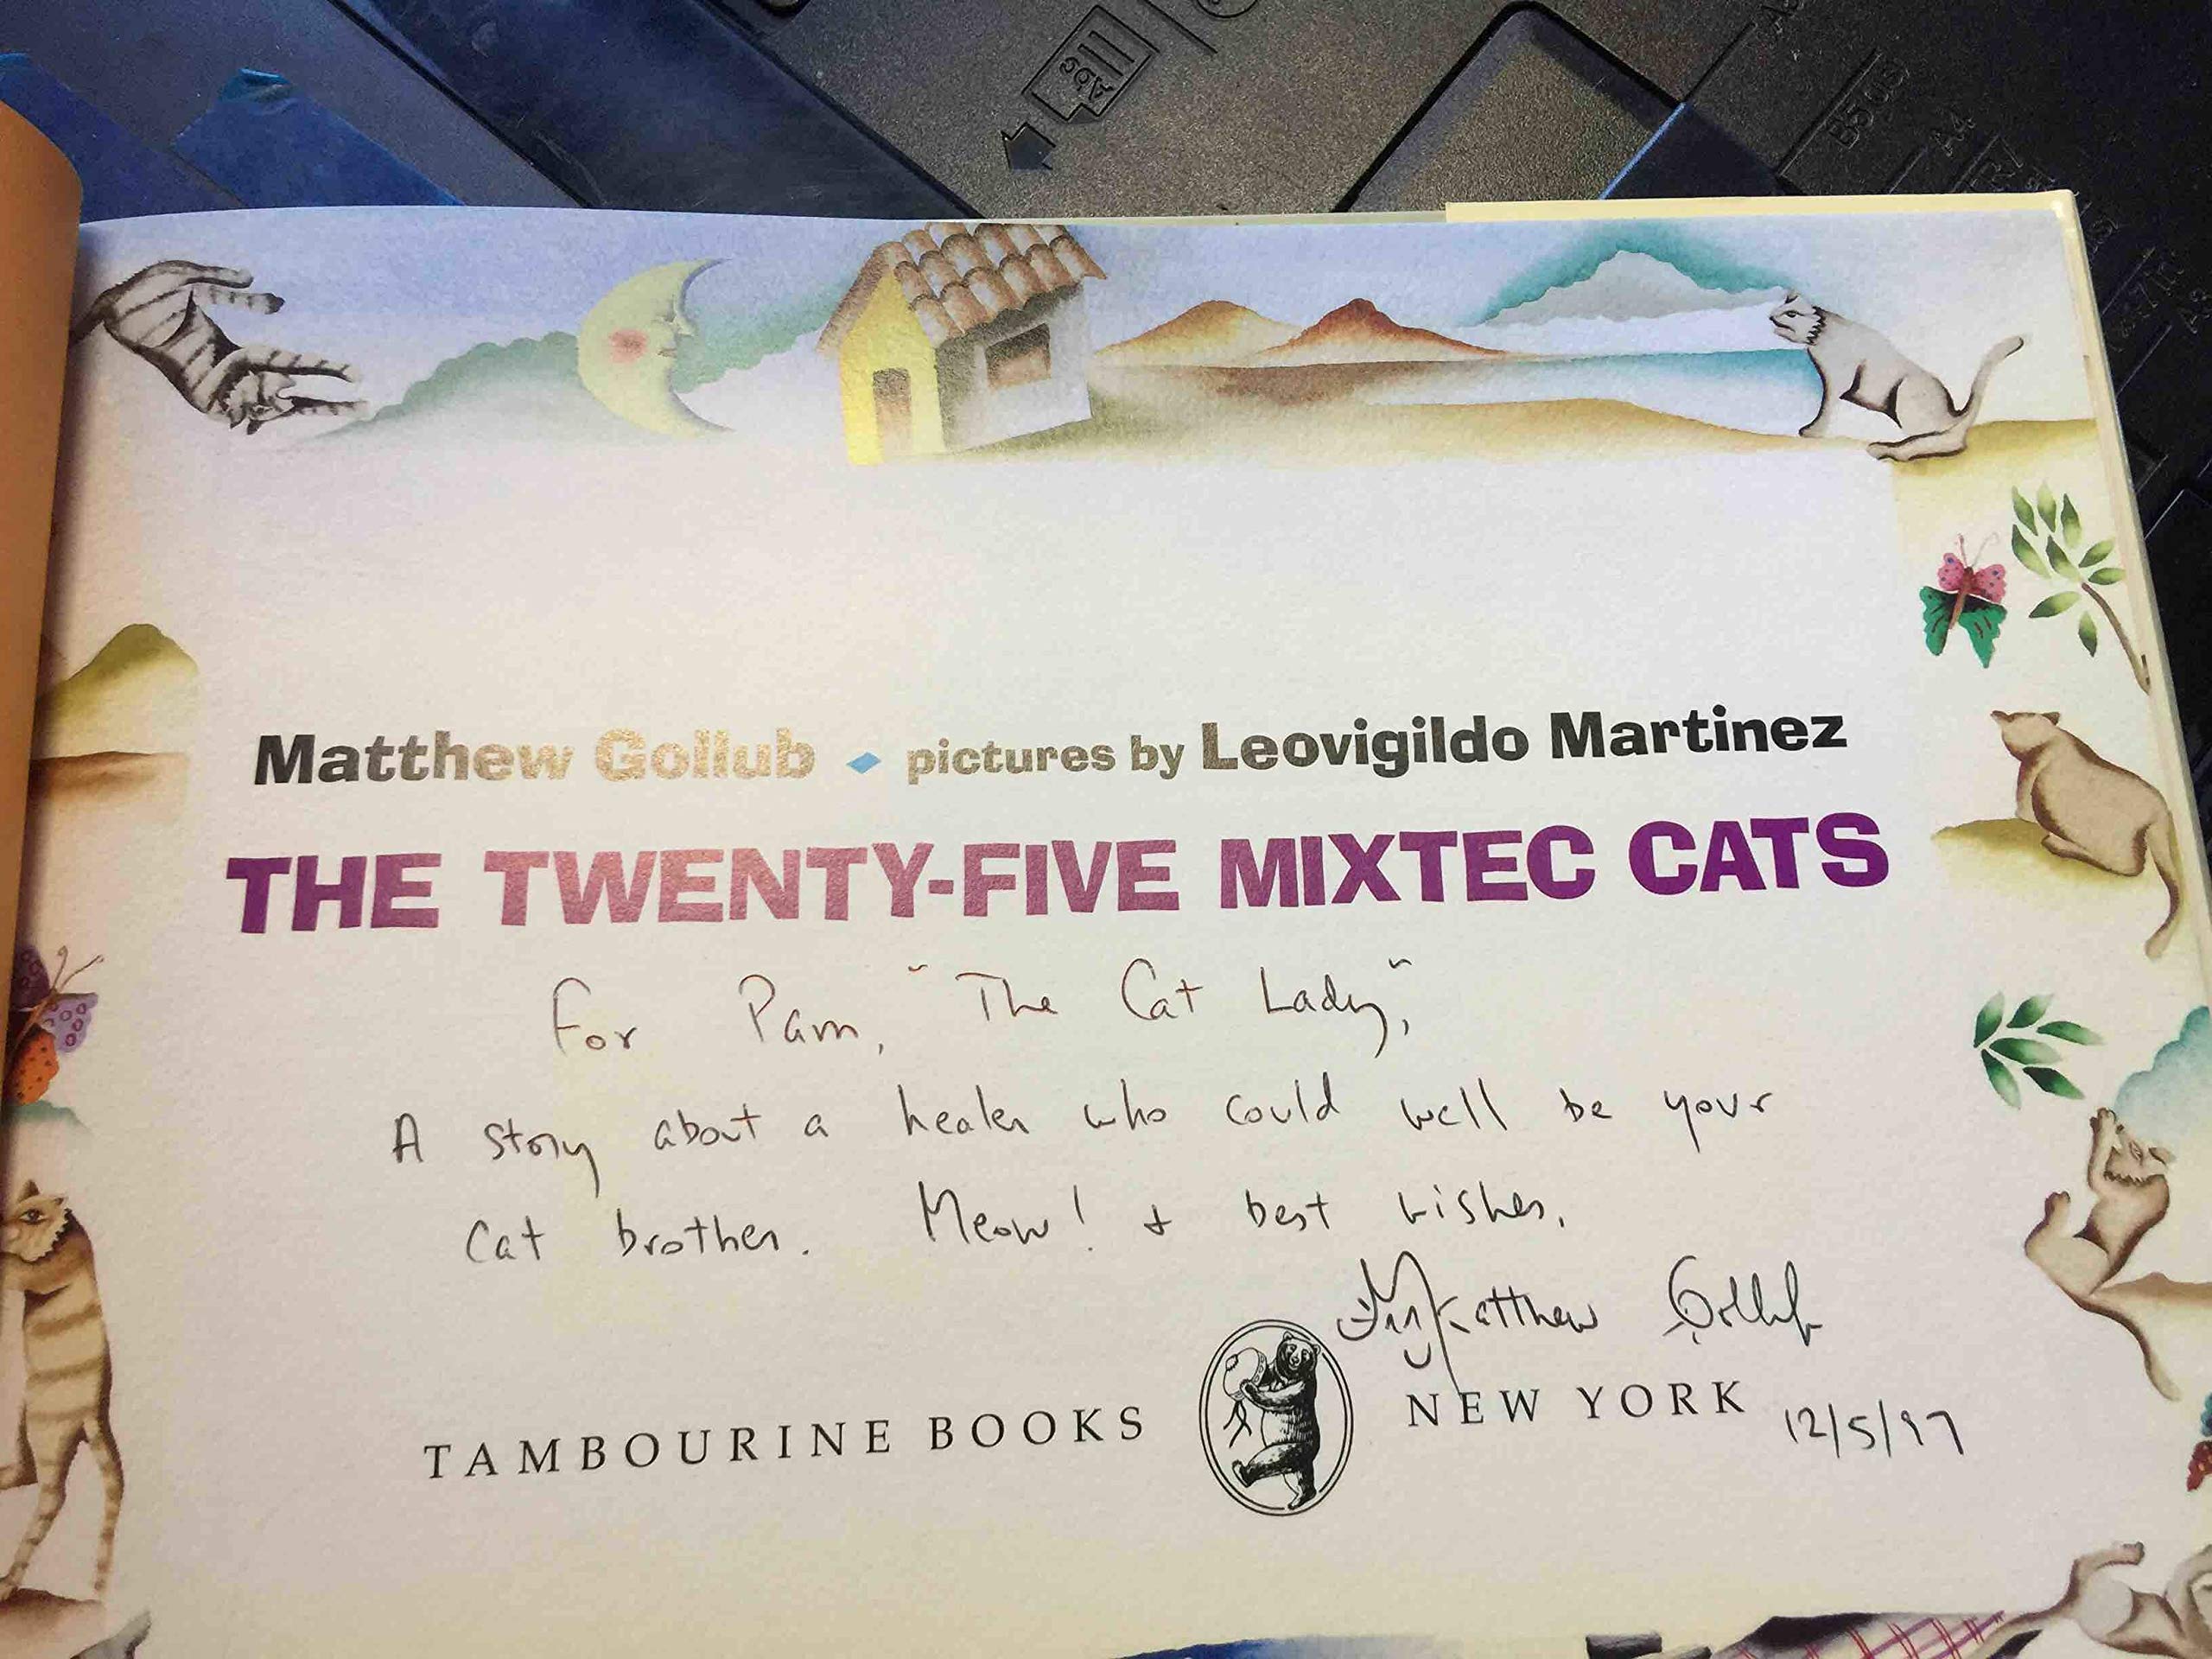 Matthew Gollub ◆ pictures by Leovigildo Martinez
THE TWENTY-FIVE MIXTEC CATS
For Pam, "The Cat Lady",
A story about a healer who could well be your
Cat brother. Meow! + best wishes,
Matthew Gollub
TAMBOURINE BOOKS NEW YORK
12/5/97
B5
A4